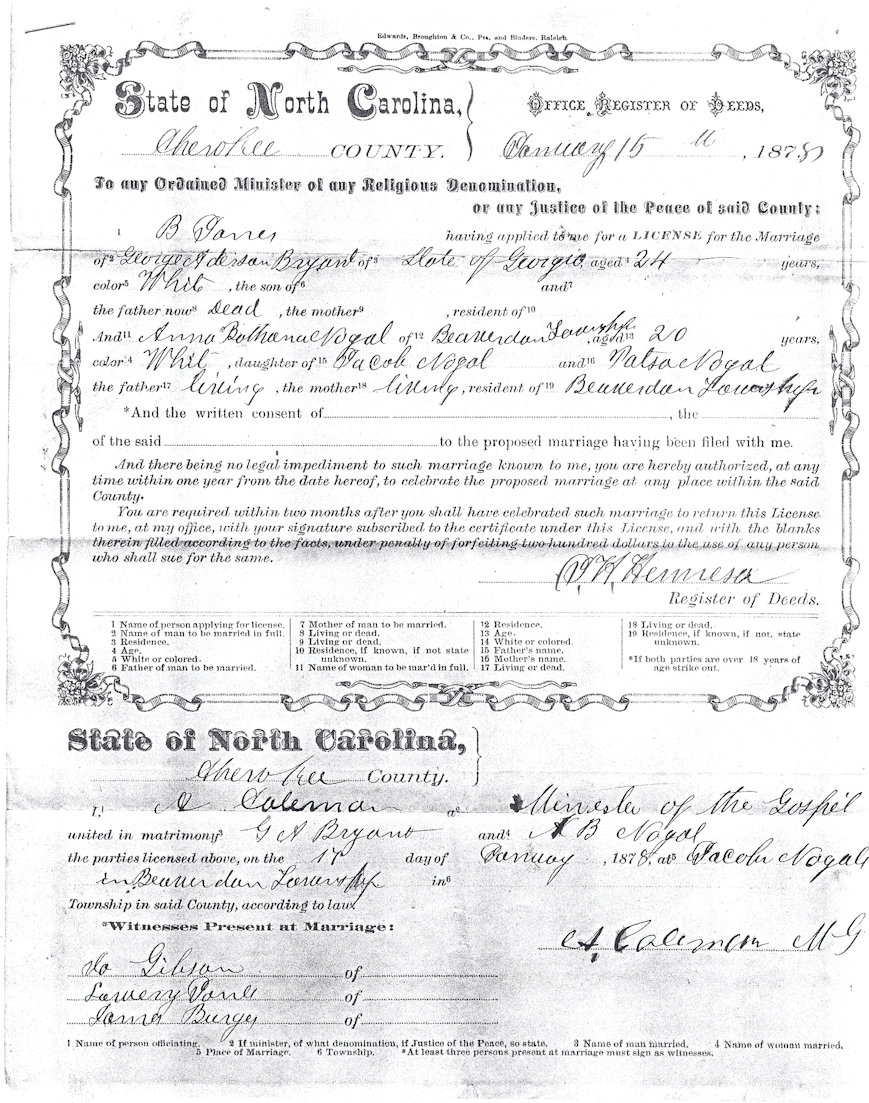 Edwards, Broughton & Co., Prs. and Binders, Raleigh.
State of North Carolina, OFFICE REGISTER OF DEEDS,
Cherokee COUNTY. January 15 th, 1878
To any Ordained Minister of any Religious Denomination,
or any Justice of the Peace of said County:
1 B Jones having applied to me for a LICENSE for the Marriage
of2 George Aderson Bryant of3 State of Georgia aged4 24 years,
color5 Whit, the son of6 and7
the father now8 Dead, the mother9, resident of10
And11 Anna Nogal of12 Beaverdan Township, aged13 20 years,
color14 Whit, daughter of15 Jacob Nogal and16 Patsa Nogal
the father17 living, the mother18 living, resident of19 Beaverdan Township
*And the written consent of, the
of the said to the proposed marriage having been filed with me.
And there being no legal impediment to such marriage known to me, you are hereby authorized, at any
time within one year from the date hereof, to celebrate the proposed marriage at any place within the said
County.
You are required within two months after you shall have celebrated such marriage to return this License
to me, at my office, with your signature subscribed to the certificate under this License, and with the blanks
therein filled according to the facts, under penalty of forfeiting two hundred dollars to the use of any person
who shall sue for the same.
Register of Deeds.
1 Name of person applying for license.
2 Name of man to be married in full.
3 Residence.
4 Age.
5 White or colored.
6 Father of man to be married.
7 Mother of man to be married.
8 Living or dead.
9 Living or dead.
10 Residence, if known, if not state
unknown.
11 Name of woman to be mar'd in full.
12 Residence.
13 Age.
14 White or colored.
15 Father's name.
16 Mother's name.
17 Living or dead.
18 Living or dead.
19 Residence, if known, if not, state
unknown.
*If both parties are over 18 years of
age strike out.
State of North Carolina,
Cherokee County.
I,1 A Coleman a2 Minester of the Gospel
united in matrimony3 G A Bryant and4 A B Nogal
the parties licensed above, on the 17 day of January, 1878, at5 Jacob Nogals
in Beaverdan Township in6
Township in said County, according to law.
*Witnesses Present at Marriage:
A. Coleman M G
Jo Gibson of
Lowery Jones of
James Burger of
1 Name of person officiating. 2 If minister, of what denomination, if Justice of the Peace, so state. 3 Name of man married. 4 Name of woman married.
5 Place of Marriage. 6 Township. *At least three persons present at marriage must sign as witnesses.